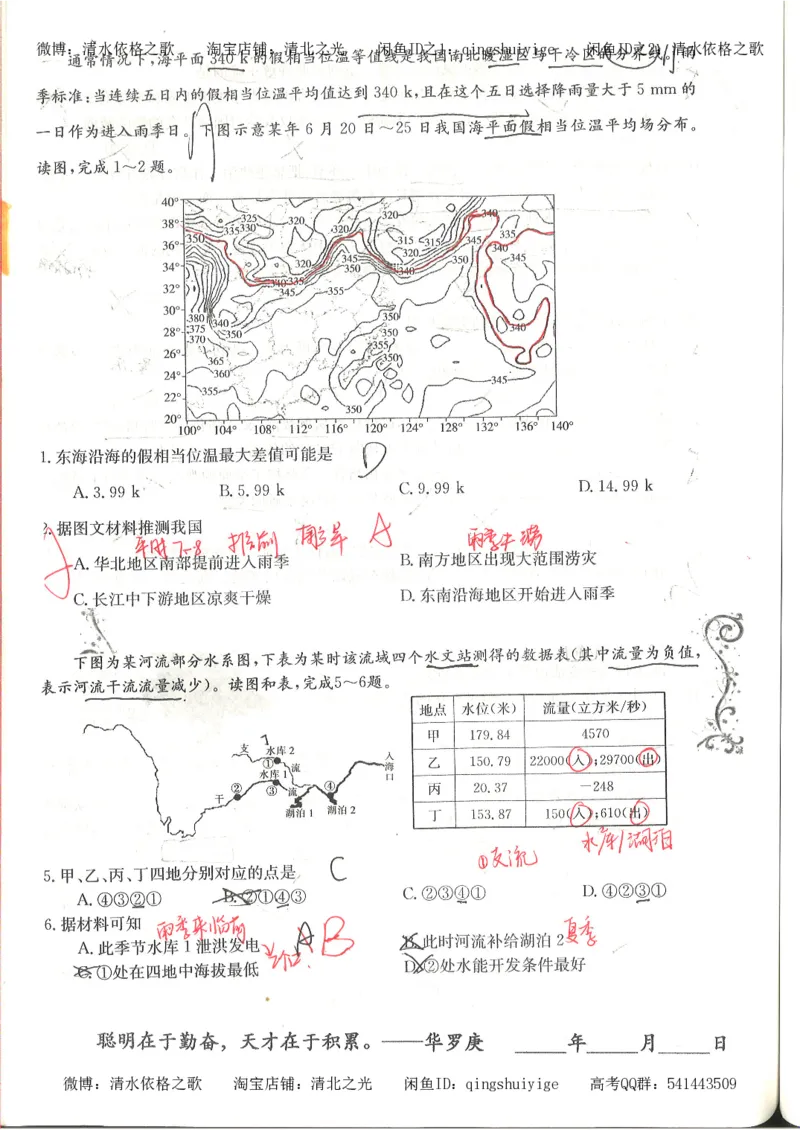 微博：清水依格之歌 淘宝店铺：清北之光 闲鱼ID之1：qingshuiyige 闲鱼ID之2：清水依格之歌
通常情况下,海平面 340 k 的假相当位温等值线是我国南北暖湿区与干冷区的分界线。雨
季标准:当连续五日内的假相当位温平均值达到 340 k,且在这个五日选择降雨量大于 5 mm 的
一日作为进入雨季日。下图示意某年 6 月 20 日～25 日我国海平面假相当位温平均场分布。
读图,完成 1～2 题。
40°
38°
36°
34°
32°
30°
28°
26°
24°
22°
20°
100° 104° 108° 112° 116° 120° 124° 128° 132° 136° 140°
1.东海沿海的假相当位温最大差值可能是 D
A. 3.99 k B. 5.99 k C. 9.99 k D. 14.99 k
2.据图文材料推测我国 A
平时7-8 推前 雨季中涝
A. 华北地区南部提前进入雨季 B. 南方地区出现大范围涝灾
C. 长江中下游地区凉爽干燥 D. 东南沿海地区开始进入雨季
下图为某河流部分水系图,下表为某时该流域四个水文站测得的数据表(其中流量为负值,
表示河流干流流量减少)。读图和表,完成5～6题。
地点 水位(米) 流量(立方米/秒)
甲 179.84 4570
乙 150.79 22000(入);29700(出)
丙 20.37 －248
丁 153.87 150(入);610(出)
支 水库 2
① 流
水库 1
② ③ 流 ④
干
湖泊 1 湖泊 2
入海口
水库/湖泊
①支流
5. 甲、乙、丙、丁四地分别对应的点是 C
A. ④③②① B. ②①④③ C. ②③④① D. ④②③①
6. 据材料可知 雨季来临前 A B 夏季
A. 此季节水库 1 泄洪发电 B. 此时河流补给湖泊 2
C. ①处在四地中海拔最低 D. ②处水能开发条件最好
聪明在于勤奋，天才在于积累。——华罗庚 年 月 日
微博：清水依格之歌 淘宝店铺：清北之光 闲鱼ID：qingshuiyige 高考QQ群：541443509